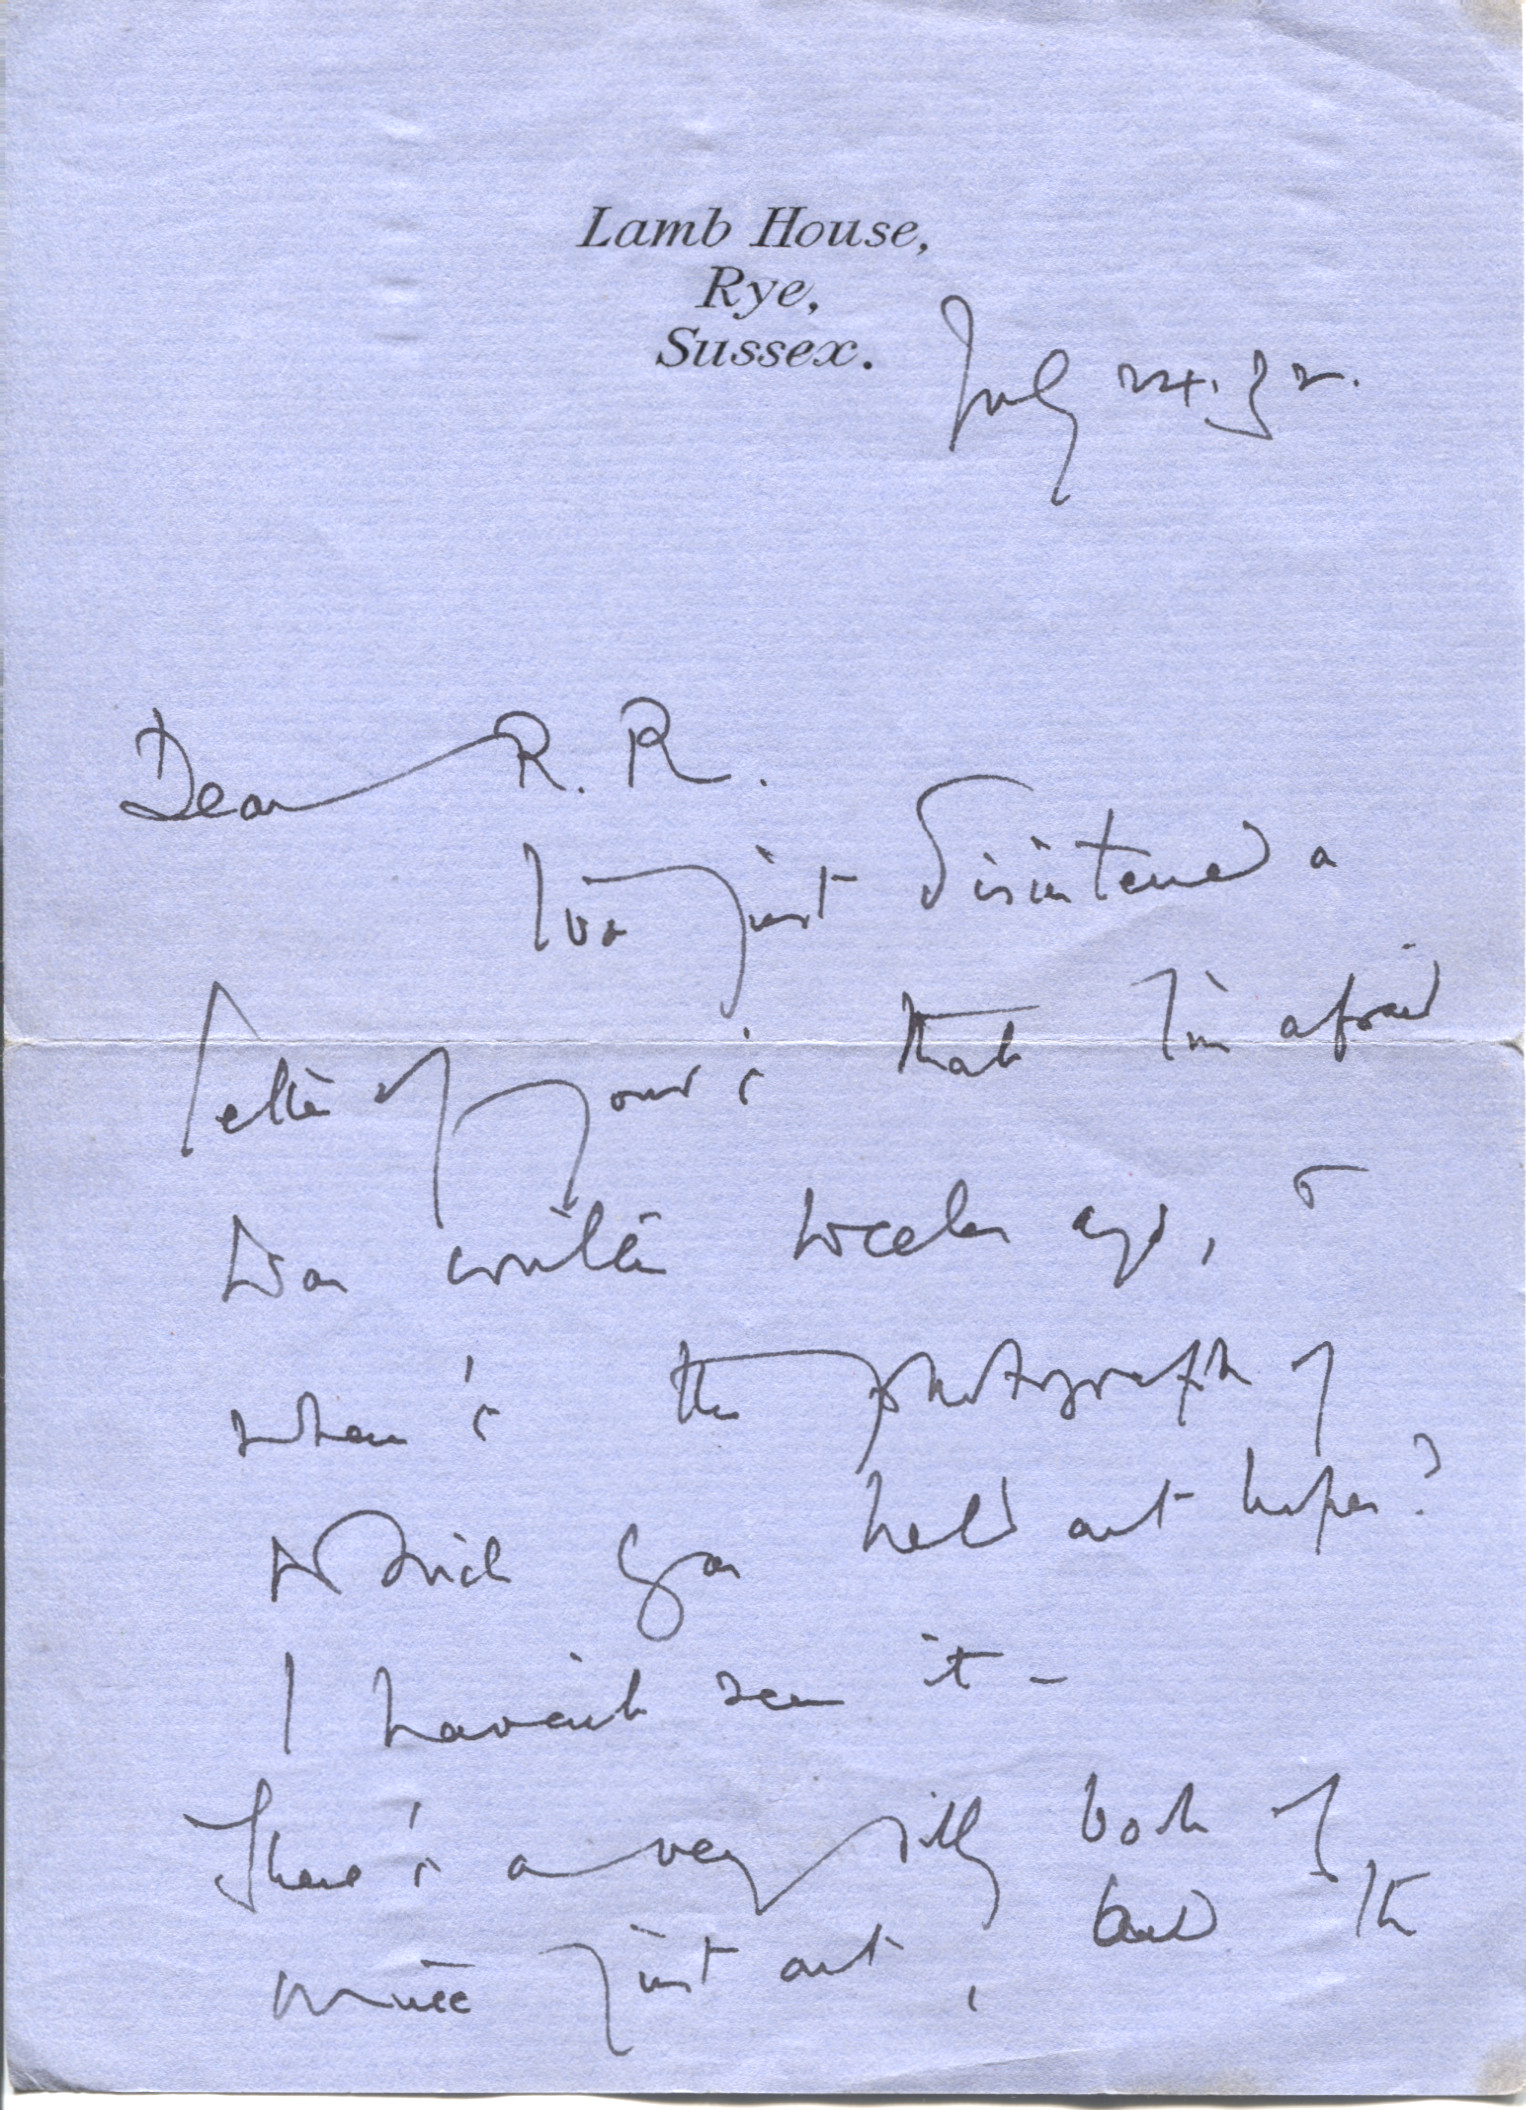 Lamb House,
Rye,
Sussex.
July 24. 32.
Dear R. R.
I've just disinterred a
letter of your's that I'm afraid
was written weeks ago, &
where's the photograph of
which you held out hopes?
I haven't seen it –
There's a very silly book of
mine just out, and the